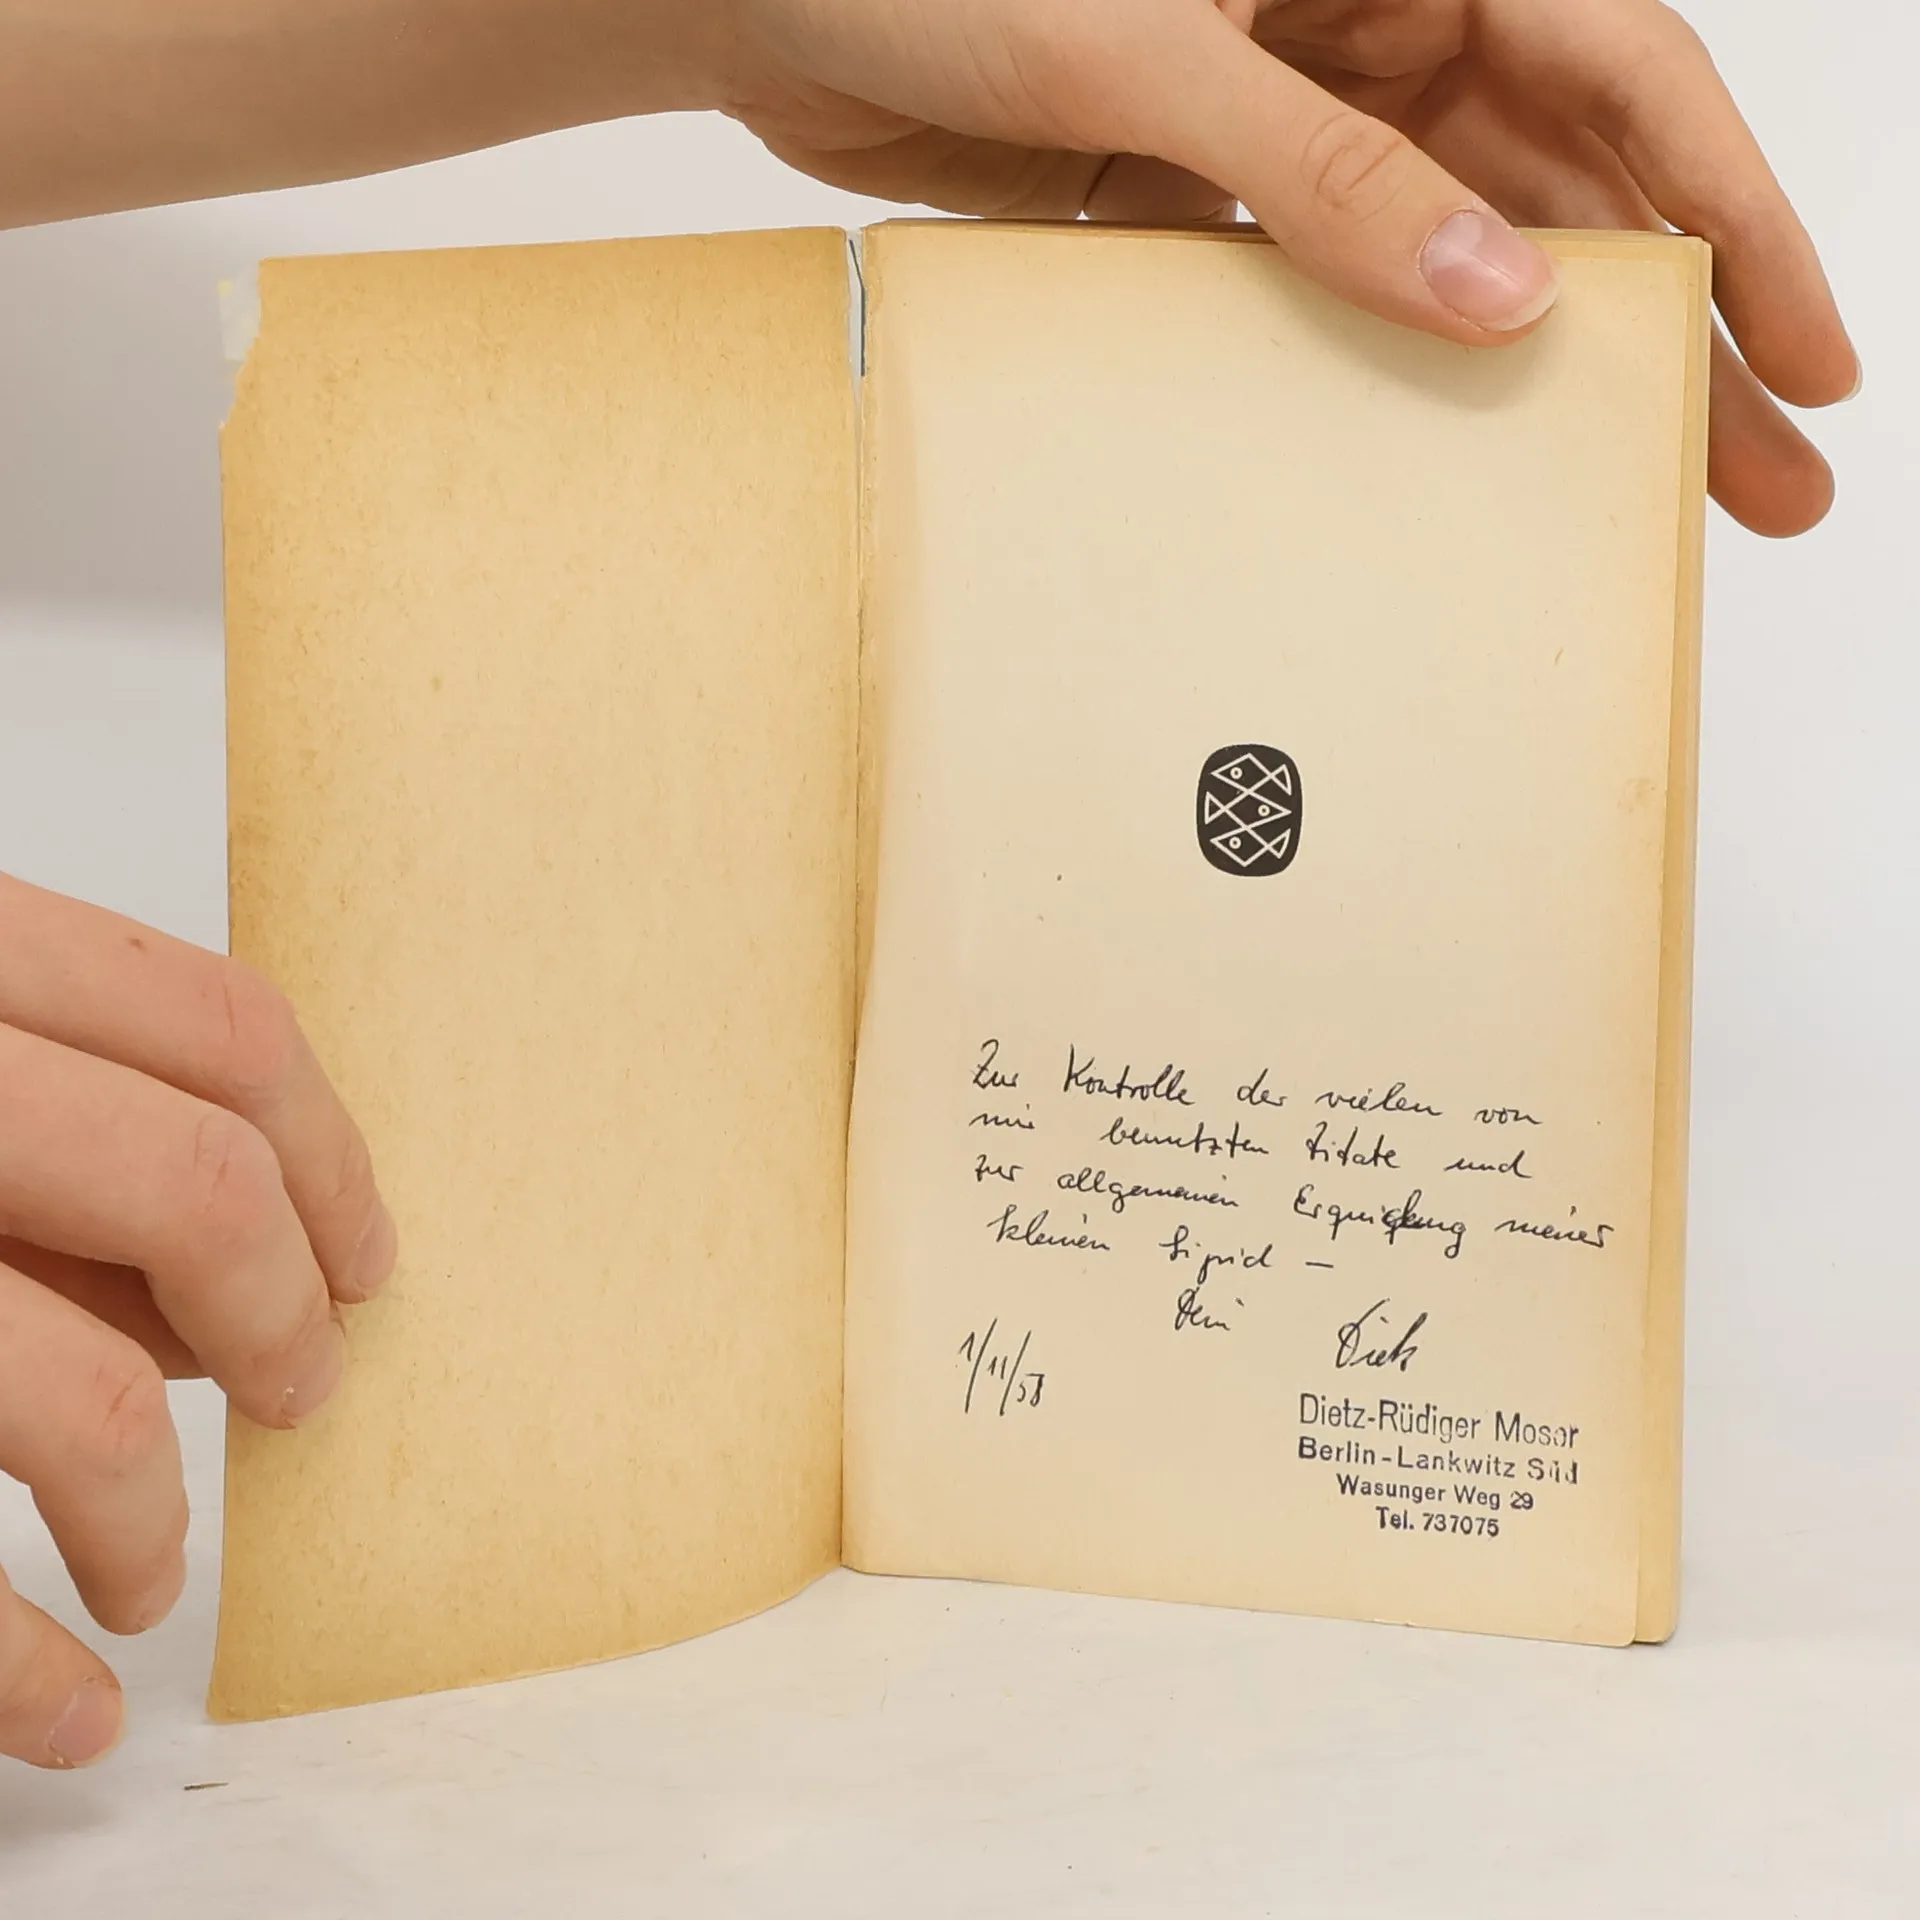 Zur Kontrolle der vielen von
mir benutzten Zitate und
zur allgemeinen Erquickung meiner
kleinen Sigrid —
Dein Dick
1/11/58
Dietz-Rüdiger Moser
Berlin-Lankwitz Süd
Wasunger Weg 29
Tel. 737075